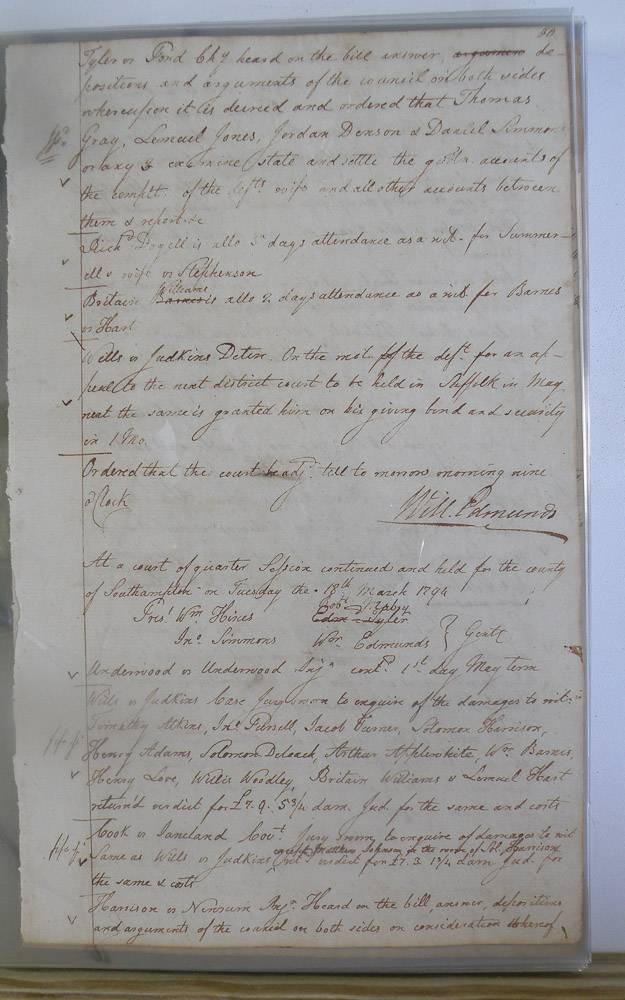 60
Tyler vs Pond Chy heard on the bill answer, argumen de-
positions and arguments of the council on both sides
whereupon it is decreed and ordered that Thomas
Gray, Lemuel Jones, Jordan Denson & Daniel Simmons
or any 3 examine state and settle the accounts of
the complt. of the defts. wife and all other accounts between
them & report &c
Richd is allo 5 days attendance as a wit. for Summer-
ell & wife vs Stephenson
Williams
Britain Barnes is allo 2 days attendance as a wit for Barnes
vs Hart
Wills vs Judkins Detin. On the mot. of the deft. for an ap-
peal to the next district court to be held in Suffolk in May
next the same is granted him on his giving bond and security
in 1 Mo.
Ordered that the court be adj. till to morrow morning nine
oClock
Will. Edmunds
At a court of quarter Session continued and held for the county
of Southampton on Tuesday the 18th March 1794
Prest. Wm Hines
Edm Tyler
Jno. Simmons Wm. Edmunds } Gent
Underwood vs Underwood Inj. contd. 1st day May term
Wills vs Judkins Case Jury sworn to enquire of the damages to wit
Timothy Atkins, Jno. Ferrell, Jacob Turner, Solomon Harrison,
Henry Adams, Solomon Deloach, Arthur Applewhite, Wm. Barnes,
Henry Love, Willis Woodley, Britain Williams & Lemuel Hart
return'd verdict for £7.9.5 3/4 dam. Jud. for the same and costs
Cook vs Janeland Covt. Jury sworn to enquire of damages to wit
except Matthew Johnson in the room of Sol. Harrison
Same as Wills vs Judkins retd. verdict for £7.3.1 3/4 dam Jud. for
the same & costs
Harrison vs Newsum Inj. Heard on the bill, answer, depositions
and arguments of the council on both sides on consideration whereof